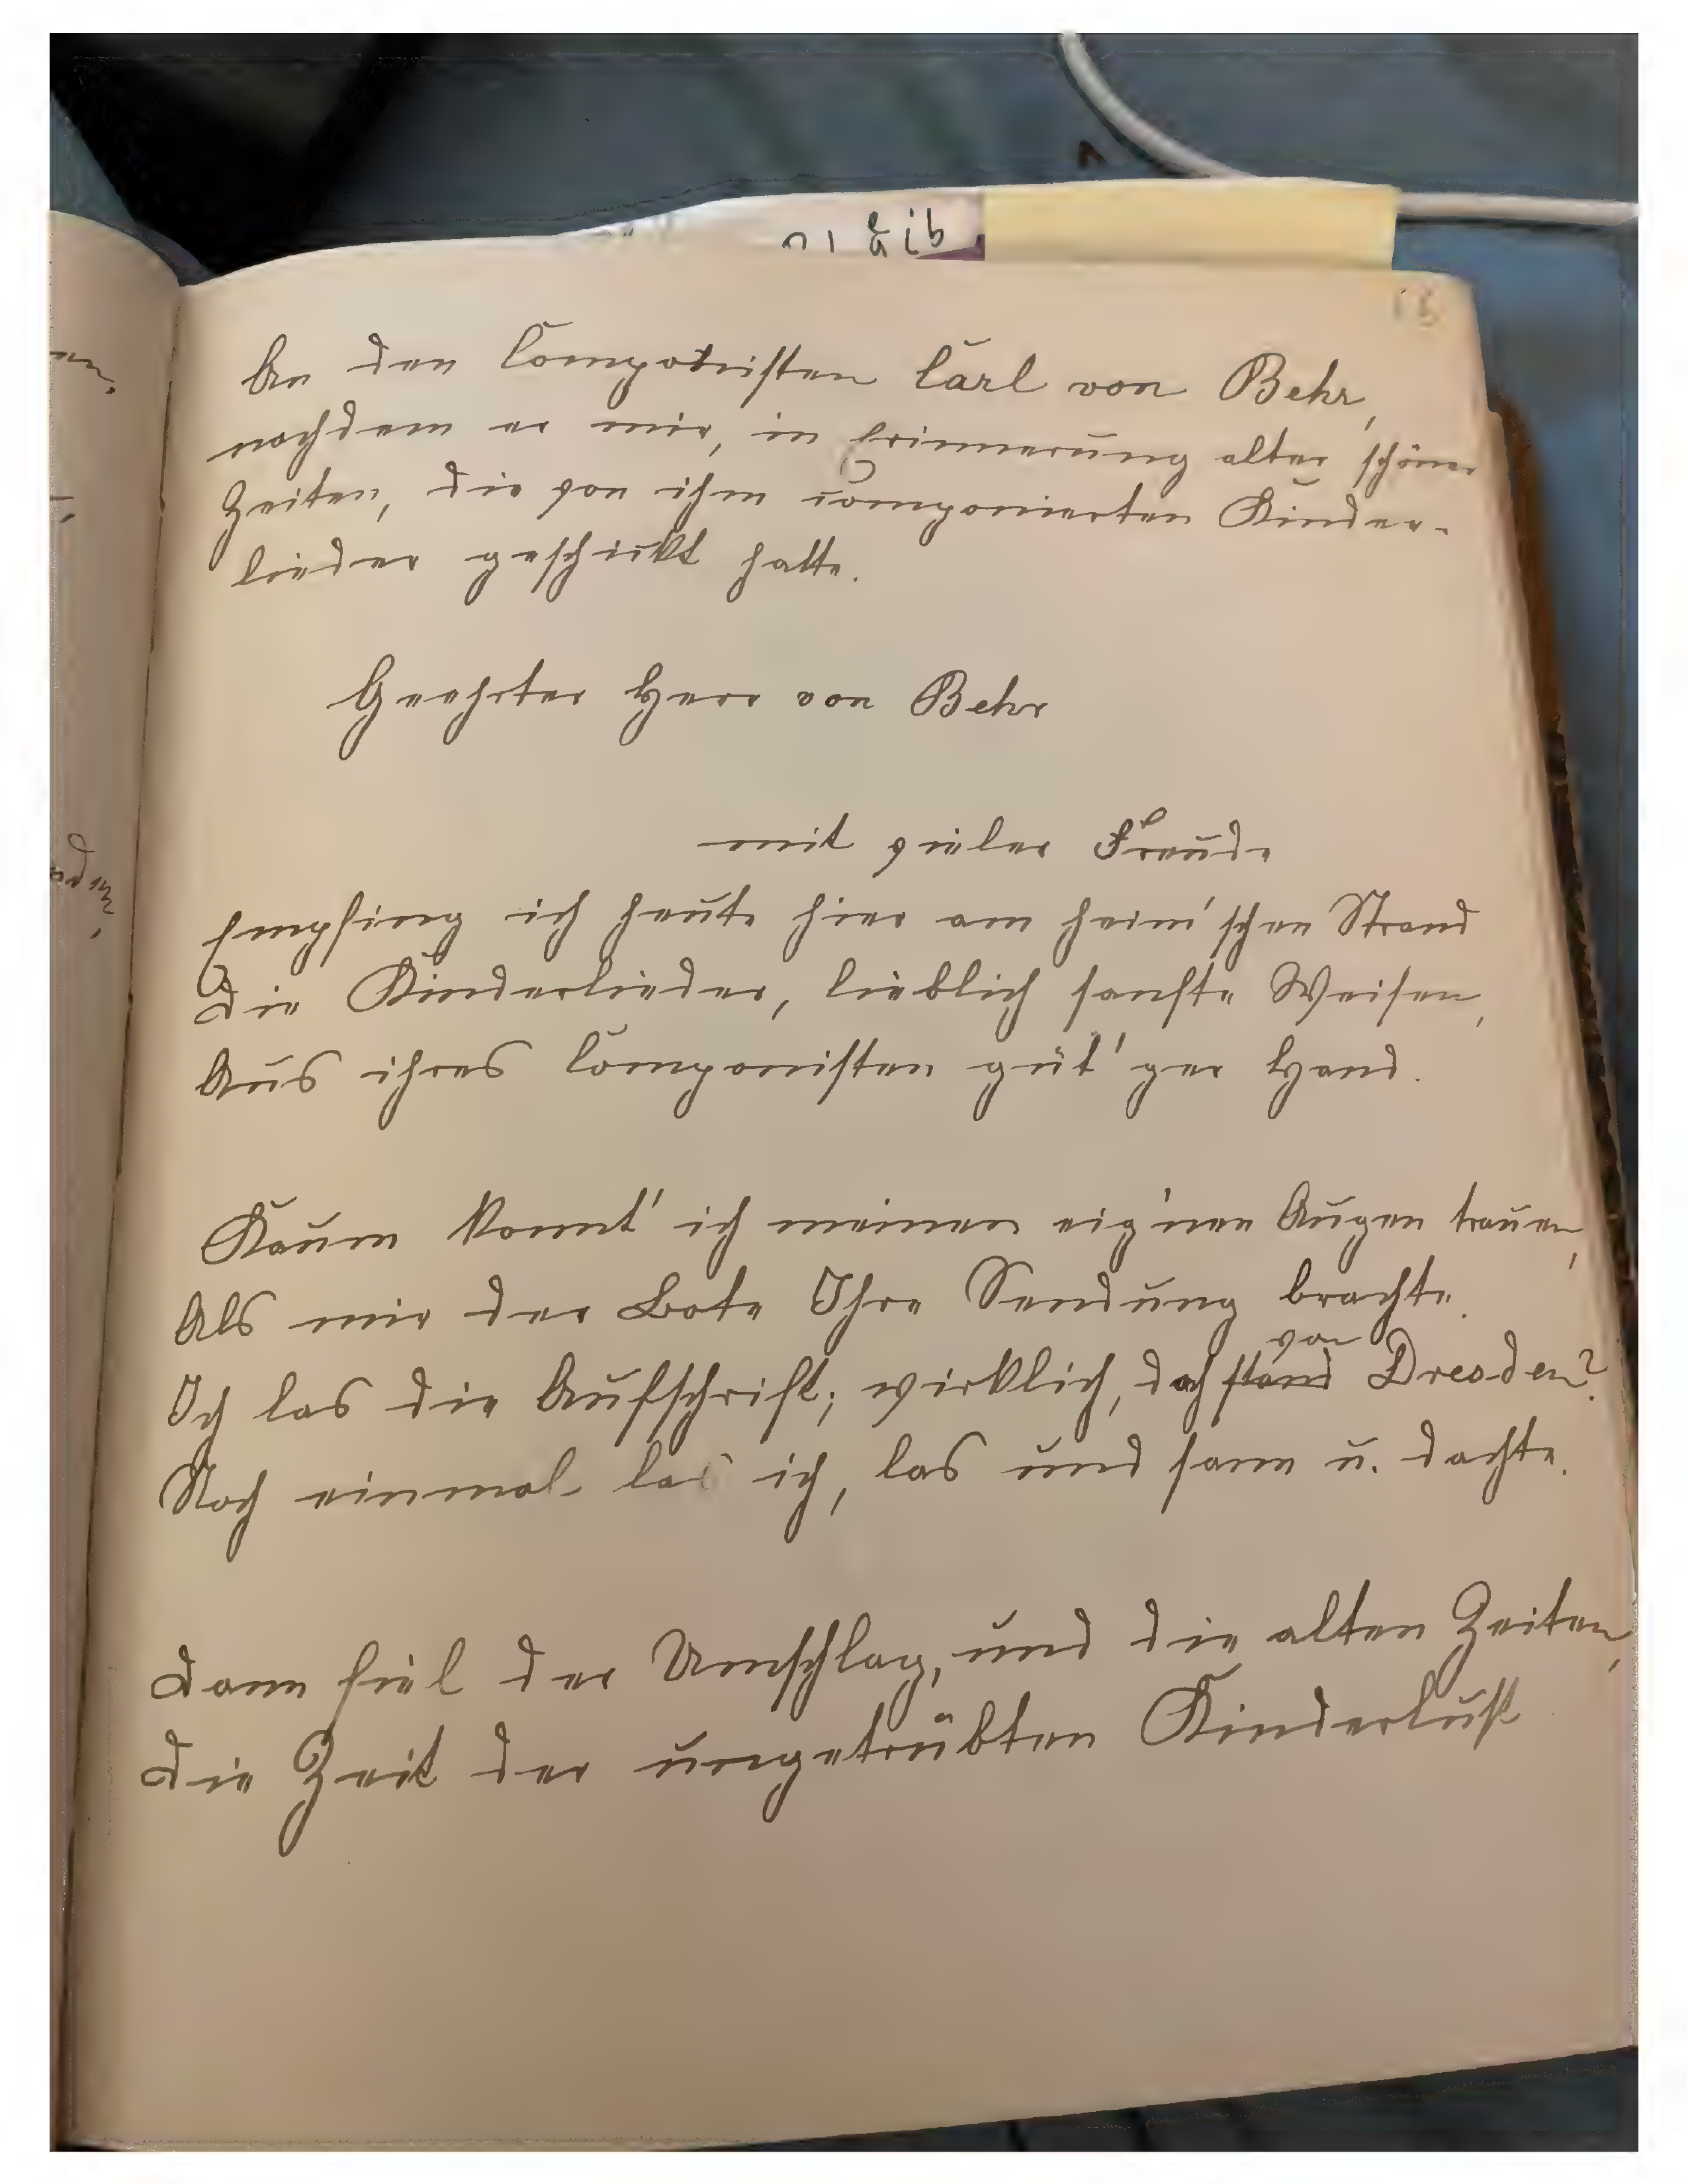 An den Componisten Carl von Behr,
nachdem er mir, in Erinnerung alter schöner
Zeiten, die von ihm componierten Kinder-
lieder geschickt hatte.
Geehrter Herr von Behr
mit vieler Freude
Empfing ich heute hier am heim'schen Strand
Die Kinderlieder, lieblich sanfte Weisen,
Aus ihres Componisten güt'ger Hand.
Kaum konnt' ich meinen eig'nen Augen trauen,
Als mir der Bote Ihre Sendung brachte.
von
Ich las die Aufschrift; wirklich, doch stand Dresden?
Noch einmal las ich, las und sann u. dachte.
Dann fiel der Umschlag, und die alten Zeiten,
Die Zeit der ungetrübten Kinderlust